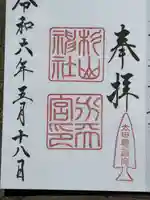 奉拝
杉山
神社
宮印
令和六年五月十八日